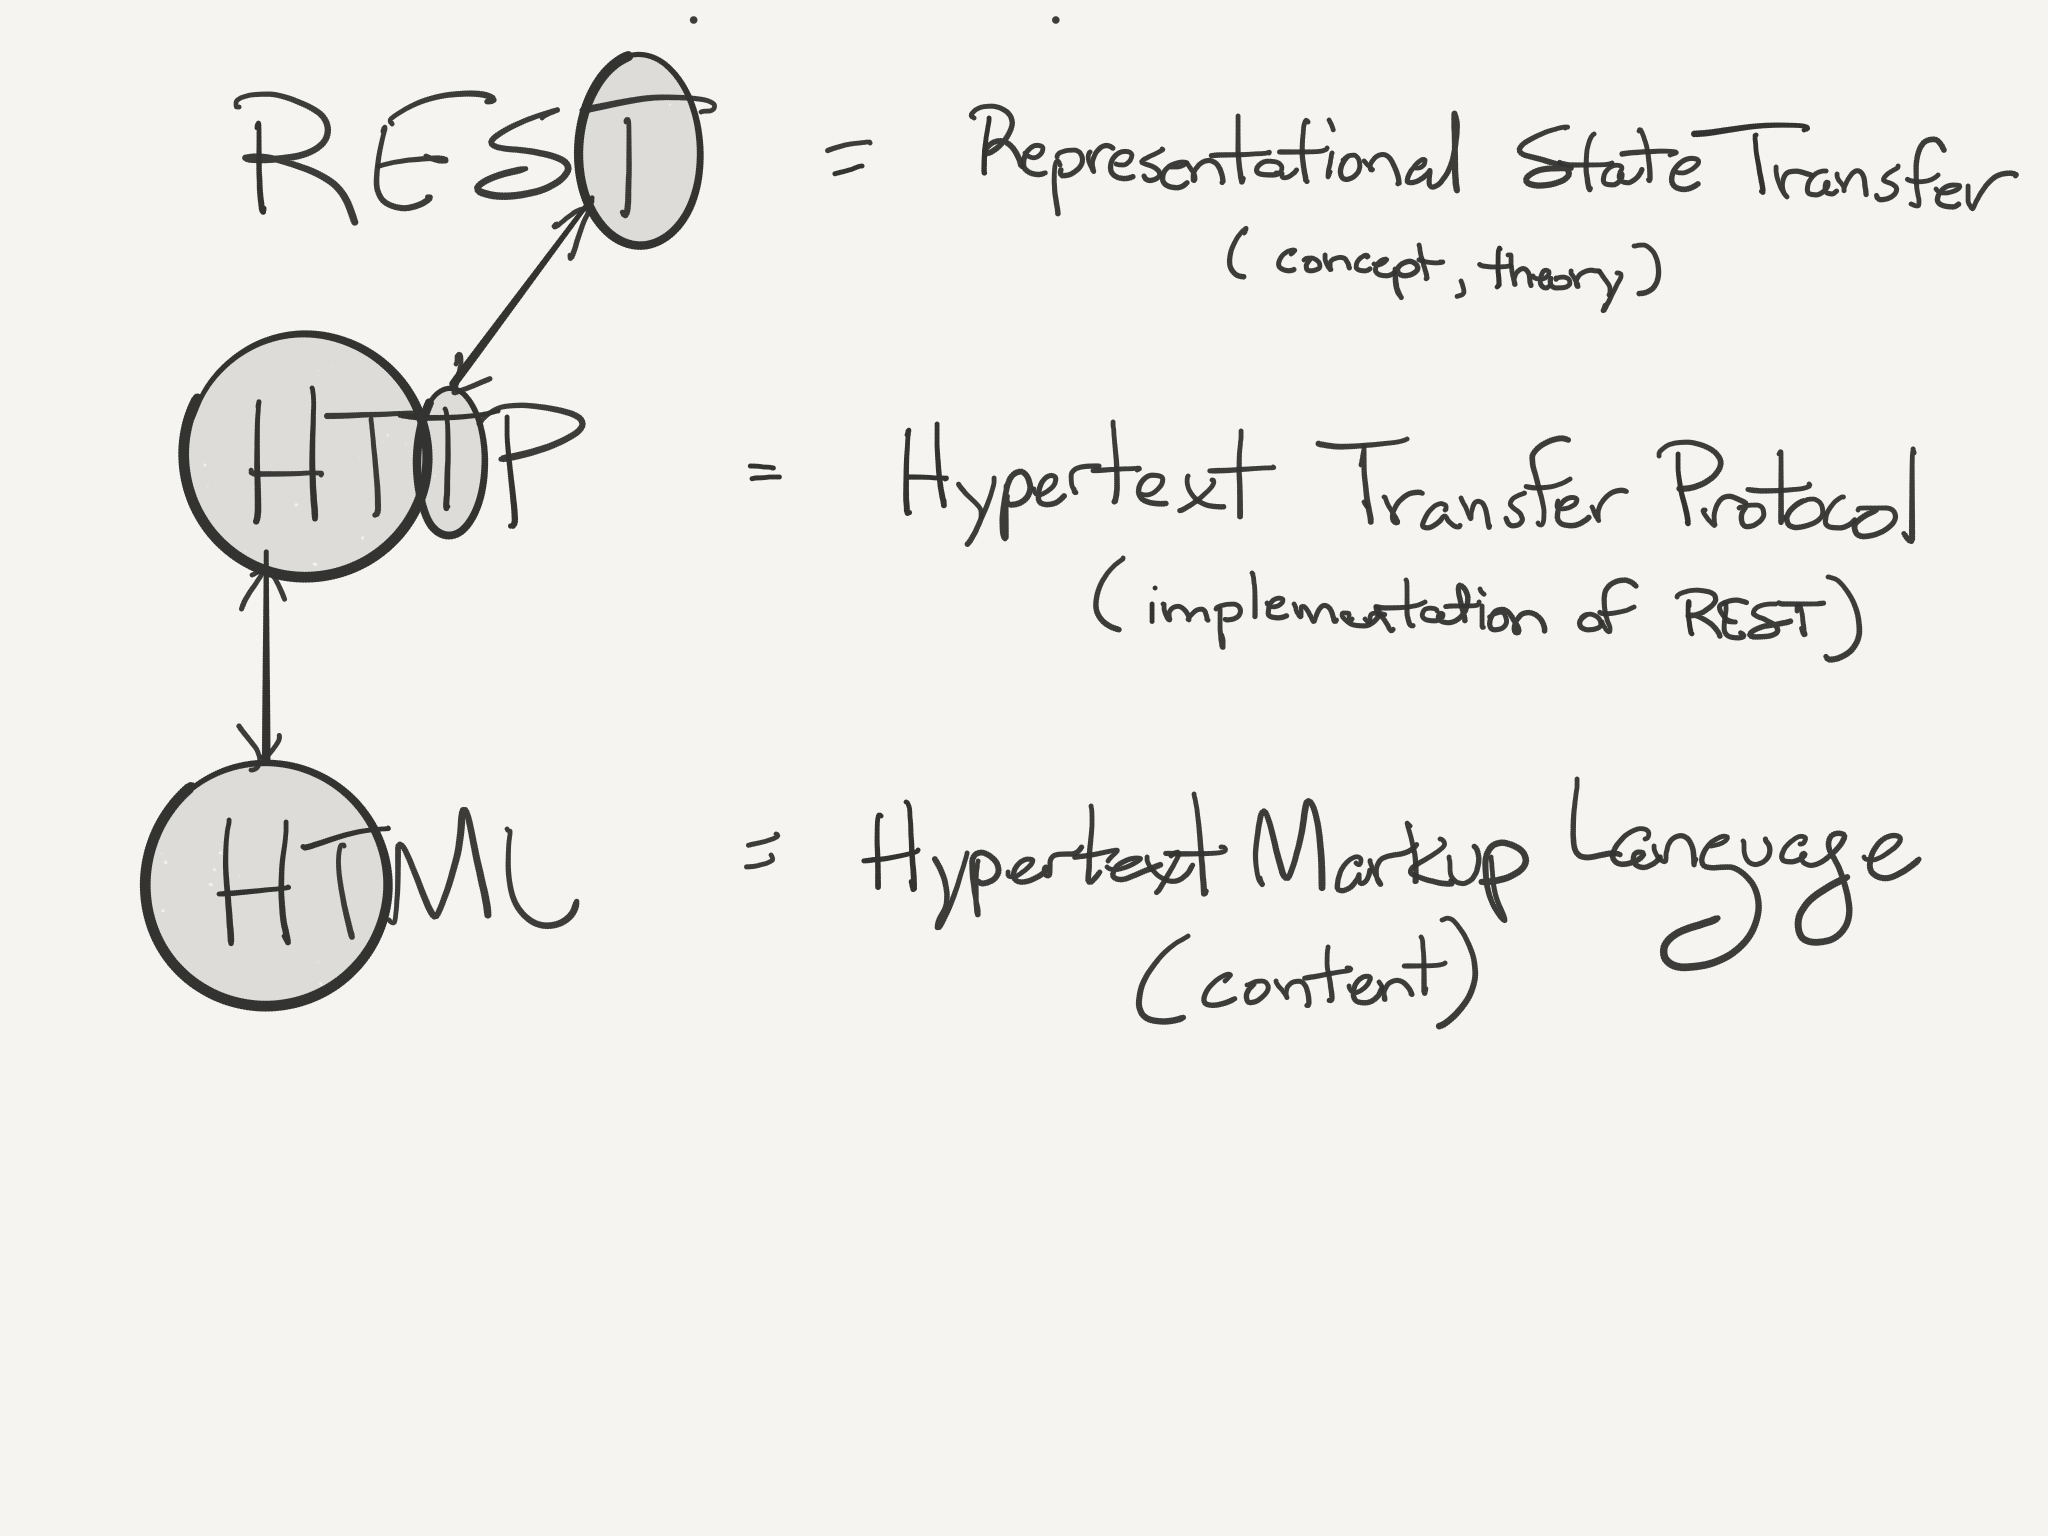 REST = Representational State Transfer
(concept, theory)
HTTP = Hypertext Transfer Protocol
(implementation of REST)
HTML = Hypertext Markup Language
(content)